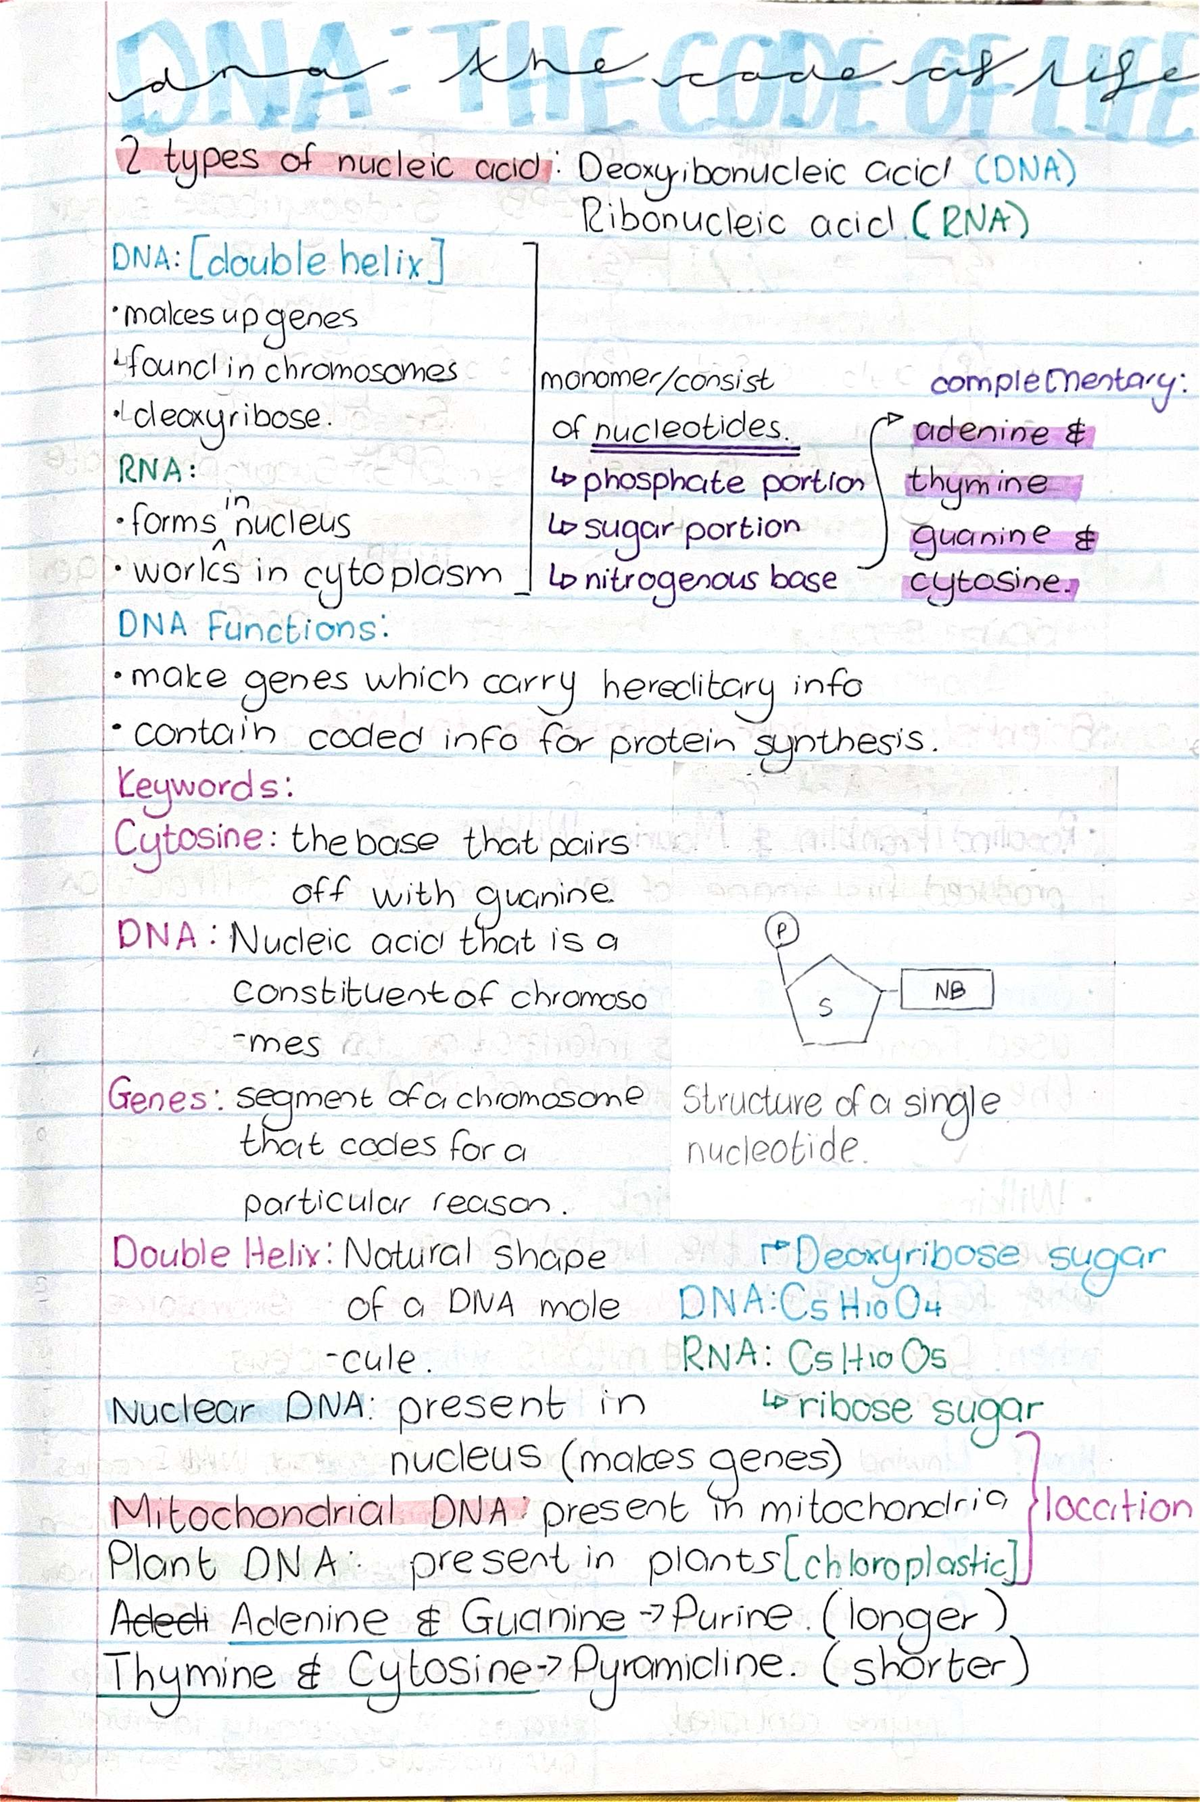 DNA: THE CODE OF LIFE
dna the code of life
2 types of nucleic acid: Deoxyribonucleic acid (DNA)
Ribonucleic acid (RNA)
DNA: [double helix]
·makes up genes
↳found in chromosomes
·↳deoxyribose.
RNA:
in
·forms ^ nucleus
·works in cytoplasm
monomer/consist
of nucleotides.
↳phosphate portion
↳sugar portion
↳nitrogenous base
complementary:
adenine &
thymine
guanine &
cytosine.
DNA Functions:
·make genes which carry hereditary info
·contain coded info for protein synthesis.
Keywords:
Cytosine: the base that pairs
off with guanine.
DNA: Nucleic acid that is a
constituent of chromoso
-mes
P
S
NB
Genes: segment of a chromosome
that codes for a
particular reason.
Structure of a single
nucleotide.
Double Helix: Natural shape
of a DNA mole
-cule.
↱Deoxyribose sugar
DNA: C5 H10 O4
RNA: C5 H10 O5
↳ribose sugar
Nuclear DNA: present in
nucleus (makes genes)
Mitochondrial DNA: present in mitochondria
Plant DNA: present in plants [chloroplastic]
location
Adedi Adenine & Guanine → Purine. (longer)
Thymine & Cytosine → Pyramidine. (shorter)